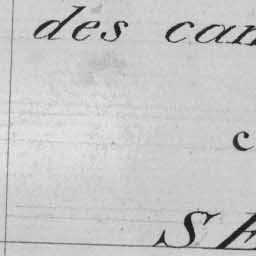 des can
c
SE